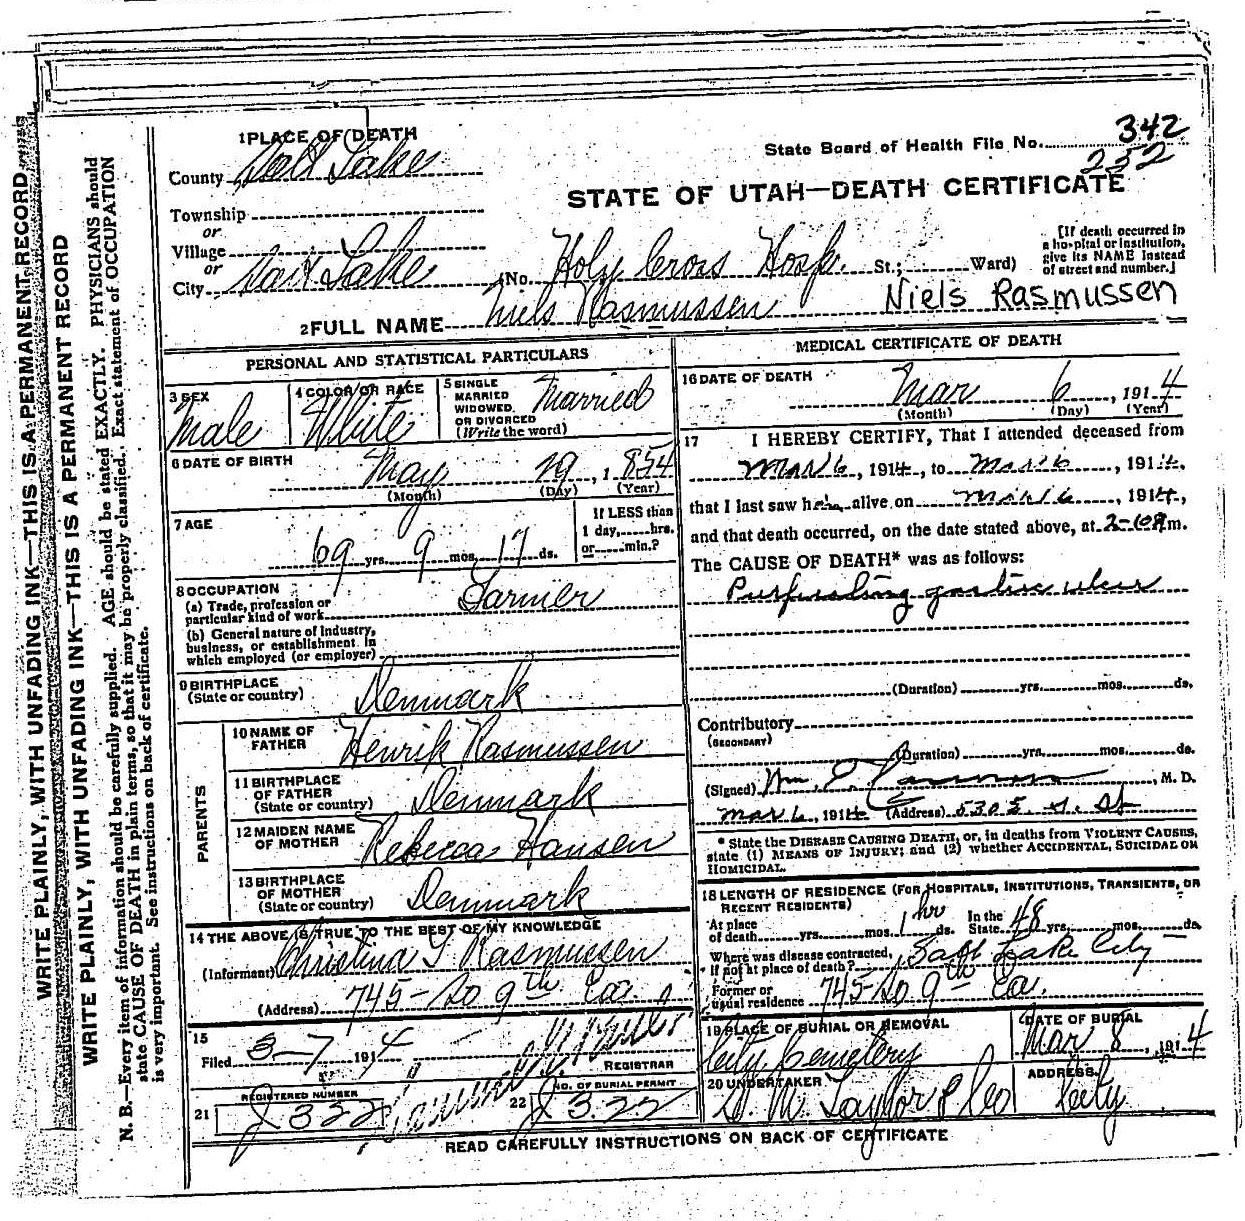 WRITE PLAINLY, WITH UNFADING INK—THIS IS A PERMANENT RECORD
WRITE PLAINLY, WITH UNFADING INK—THIS IS A PERMANENT RECORD
N. B.—Every item of information should be carefully supplied. AGE should be stated EXACTLY. PHYSICIANS should
state CAUSE OF DEATH in plain terms, so that it may be properly classified. Exact statement of OCCUPATION
is very important. See instructions on back of certificate.
1 PLACE OF DEATH
State Board of Health File No. 342
252
County Salt Lake
STATE OF UTAH—DEATH CERTIFICATE
Township
or
Village
or
City Salt Lake (No. Holy Cross Hosp. St.; Ward)
[If death occurred in
a hospital or institution,
give its NAME instead
of street and number.]
2 FULL NAME Niels Rasmussen Niels Rasmussen
PERSONAL AND STATISTICAL PARTICULARS
3 SEX Male
4 COLOR OR RACE White
5 SINGLE
MARRIED
WIDOWED
OR DIVORCED
(Write the word) Married
6 DATE OF BIRTH May 19, 1854
(Month) (Day) (Year)
7 AGE 69 yrs. 9 mos. 17 ds.
If LESS than
1 day, hrs.
or min.?
8 OCCUPATION
(a) Trade, profession or
particular kind of work Farmer
(b) General nature of industry,
business, or establishment in
which employed (or employer)
9 BIRTHPLACE
(State or country) Denmark
PARENTS
10 NAME OF
FATHER Henrik Rasmussen
11 BIRTHPLACE
OF FATHER
(State or country) Denmark
12 MAIDEN NAME
OF MOTHER Rebecca Hansen
13 BIRTHPLACE
OF MOTHER
(State or country) Denmark
14 THE ABOVE IS TRUE TO THE BEST OF MY KNOWLEDGE
(Informant) Christina Rasmussen
(Address) 745- So 9th Ea.
15
Filed 3-7 1914
REGISTRAR
REGISTERED NUMBER
21 J 332
NO. OF BURIAL PERMIT
22 J 322
MEDICAL CERTIFICATE OF DEATH
16 DATE OF DEATH
Mar 6, 1914
(Month) (Day) (Year)
17 I HEREBY CERTIFY, That I attended deceased from
Mar 6, 1914, to Mar 6, 1914,
that I last saw him alive on Mar 6, 1914,
and that death occurred, on the date stated above, at m.
The CAUSE OF DEATH* was as follows:
Perforating gastric ulcer
(Duration) yrs. mos. ds.
Contributory
(SECONDARY)
(Duration) yrs. mos. ds.
(Signed) Wm. , M. D.
Mar 6, 1914 (Address) 530 St
* State the DISEASE CAUSING DEATH, or, in deaths from VIOLENT CAUSES,
state (1) MEANS OF INJURY; and (2) whether ACCIDENTAL, SUICIDAL OR
HOMICIDAL.
18 LENGTH OF RESIDENCE (FOR HOSPITALS, INSTITUTIONS, TRANSIENTS, OR
RECENT RESIDENTS)
At place
of death yrs. mos. 1 hr ds. In the
State 48 yrs. mos. ds.
Where was disease contracted,
If not at place of death? Salt Lake City
Former or
usual residence 745 So 9th Ea.
19 PLACE OF BURIAL OR REMOVAL
City Cemetery
DATE OF BURIAL
Mar 8, 1914
20 UNDERTAKER
S. M. Taylor & Co
ADDRESS
City
READ CAREFULLY INSTRUCTIONS ON BACK OF CERTIFICATE